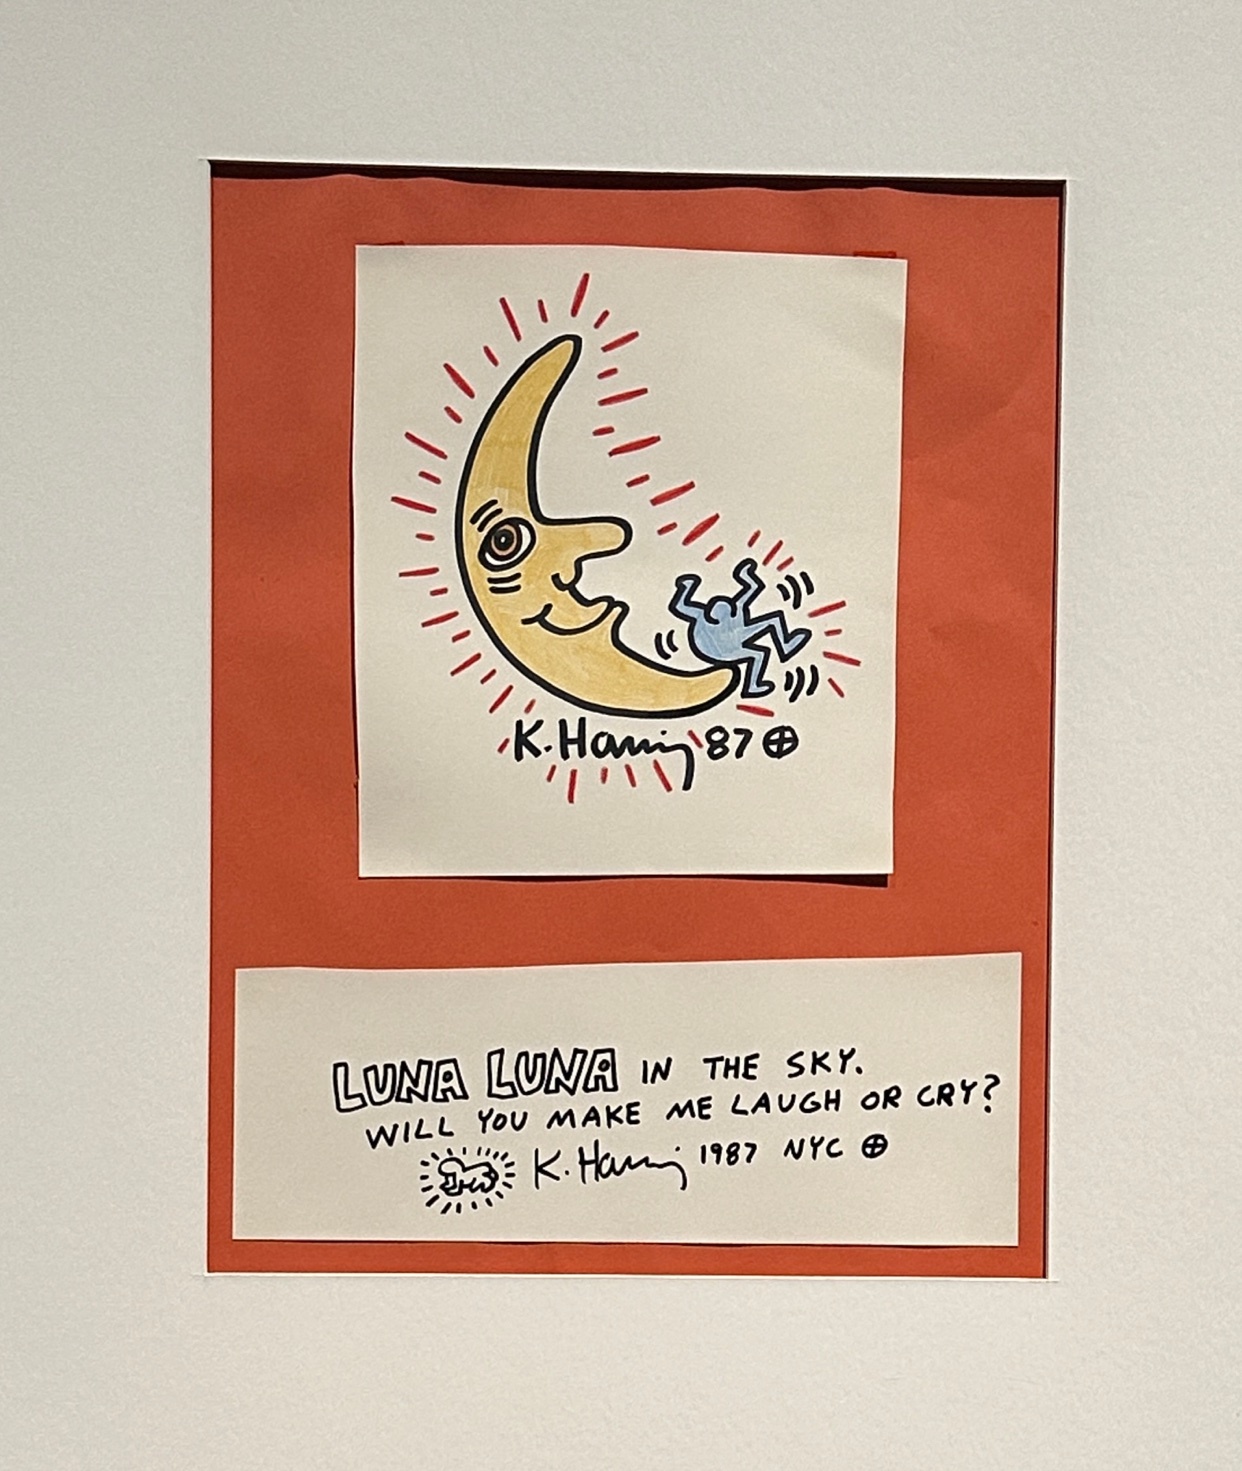 K. Haring 87
LUNA LUNA IN THE SKY.
WILL YOU MAKE ME LAUGH OR CRY?
K. Haring 1987 NYC